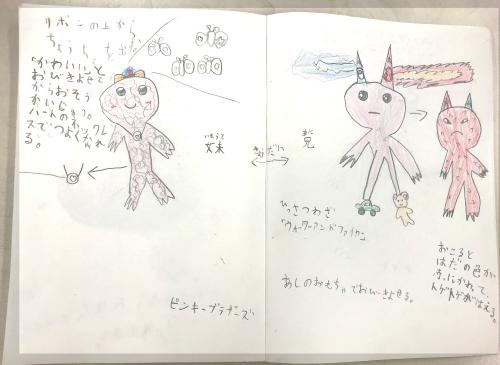 リボンの上から
ちょうちょもだす。
かわいいこと
おびきよせと
からおそう
かいじゅう。
ハートのネックレ
スでつよくなれ
る。
いもうと
妹
きょうだい
あに
兄
ひっさつわざ
「ウォーターアンドファイヤー」
あしのおもちゃでおびきよせる。
おこると
はだの色が
赤にかわって、
トゲトゲがはえる。
ピンキーブラザーズ